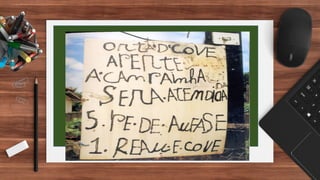 ORTAD'COVE
APERTE.
ACAMPAINHA.
SERA.ATENDIDA
5. PE.DE.AUFASE
-1. REAUE.COVE